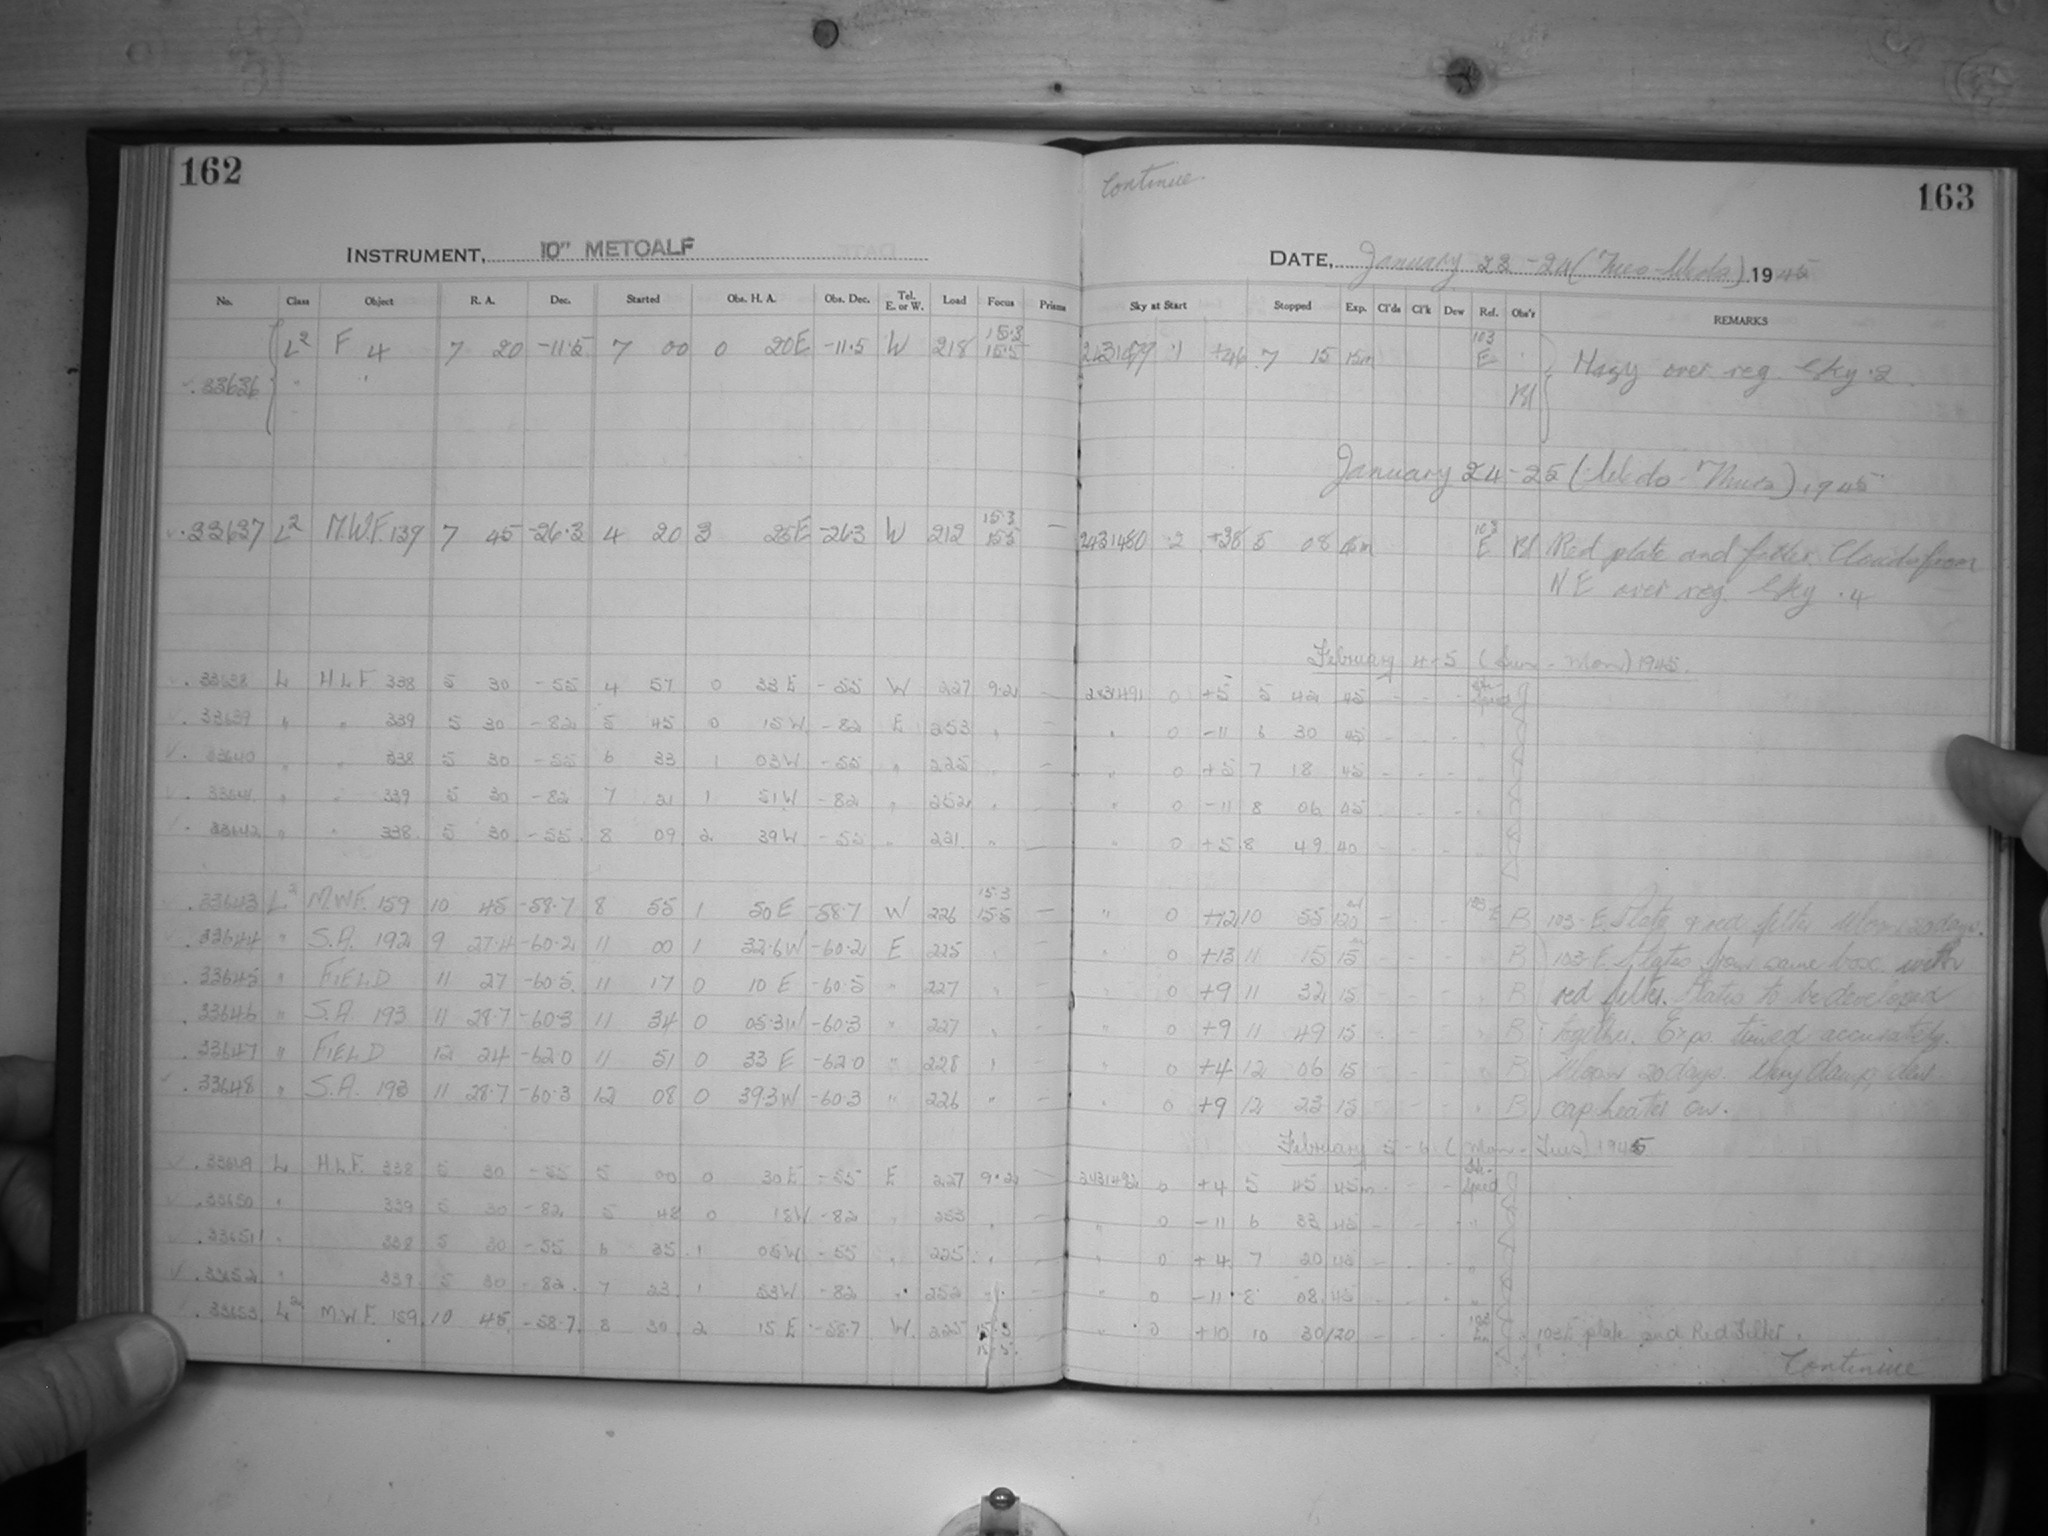 162
Continue
163
INSTRUMENT, 10" METCALF
DATE, January 23-24 (Tues-Weds) 1945
No. Class Object R. A. Dec. Started Obs. H. A. Obs. Dec. Tel. E. or W. Load Focus Prisms Sky at Start Stopped Exp. Cl'ds Cl'k Dew Ref. Obs'r REMARKS
L2 F 4 7 20 -11.5 7 00 0 20E -11.5 W 218 15.3 15.5 2431479 .1 +46 7 15 15m 103 E Hazy over reg. Sky .2
33636 " " Bl
January 24-25 (Weds-Thurs) 1945
33637 L2 M.W.F. 139 7 45 -26.3 4 20 3 25E -26.3 W 212 15.3 15.5 — 2431480 .2 +38 5 08 103 E Bl Red plate and filter. Clouds from
N E over reg. Sky .4
February 4-5 (Sun-Mon) 1945.
33638 L H L F 338 5 30 -55 4 57 0 33 E -55 W 227 9.2 — 2431491 0 +5 5 42 45 - - -
33639 " " 339 5 30 -82 5 45 0 15 W -82 E 253 " — " 0 -11 6 30 45 - - -
33640 " " 338 5 30 -55 6 33 1 03W -55 " 225 " — " 0 +5 7 18 45 - - -
33641 " " 339 5 30 -82 7 21 1 51W -82 " 252 " — " 0 -11 8 06 45 - - -
33642 " " 338 5 30 -55 8 09 2 39W -55 " 221 " — " 0 +5 8 49 40 - - -
33643 L2 M.W.F. 159 10 45 -58.7 8 55 1 50 E -58.7 W 226 15.3 15.5 — " 0 +12 10 55 120 - - - 103 E B 103-E Plate & red filter. Moon 20 days.
33644 " S.A. 192 9 27.4 -60.2 11 00 1 32.6W -60.2 E 225 " " 0 +13 11 15 15 - - - B 103-E Plates from same box with
33645 " FIELD 11 27 -60.5 11 17 0 10 E -60.5 " 227 " — " 0 +9 11 32 15 - - - " B red filter. Plates to be developed
33646 " S.A. 193 11 28.7 -60.3 11 34 0 05.3W -60.3 " 227 " — " 0 +9 11 49 15 - - - " B together. Exps. timed accurately.
33647 " FIELD 12 24 -62.0 11 51 0 33 E -62.0 " 228 " — " 0 +4 12 06 15 - - - " B Moon 20 days. Very damp, dew
33648 " S.A. 193 11 28.7 -60.3 12 08 0 39.3W -60.3 " 226 " — " 0 +9 12 23 15 - - - " B cap heater on.
February 5-6 (Mon-Tues) 1945
33649 L H.L.F. 338 5 30 -55 5 00 0 30 E -55 E 227 9.2 — 2431492 0 +4 5 45 45m - - -
33650 " 339 5 30 -82 5 48 0 18W -82 " 253 " — " 0 -11 6 33 45 - - -
33651 " 338 5 30 -55 6 35 1 05W -55 " 225 " — " 0 +4 7 20 45 - - -
33652 " 339 5 30 -82 7 23 1 53W -82 " 252 " — " 0 -11 8 08 45 - - -
33653 L2 M.W.F. 159 10 45 -58.7 8 30 2 15 E -58.7 W 225 15.3 15.5 " 0 +10 10 30 120 - - - 103 103E plate and Red Filter.
Continue